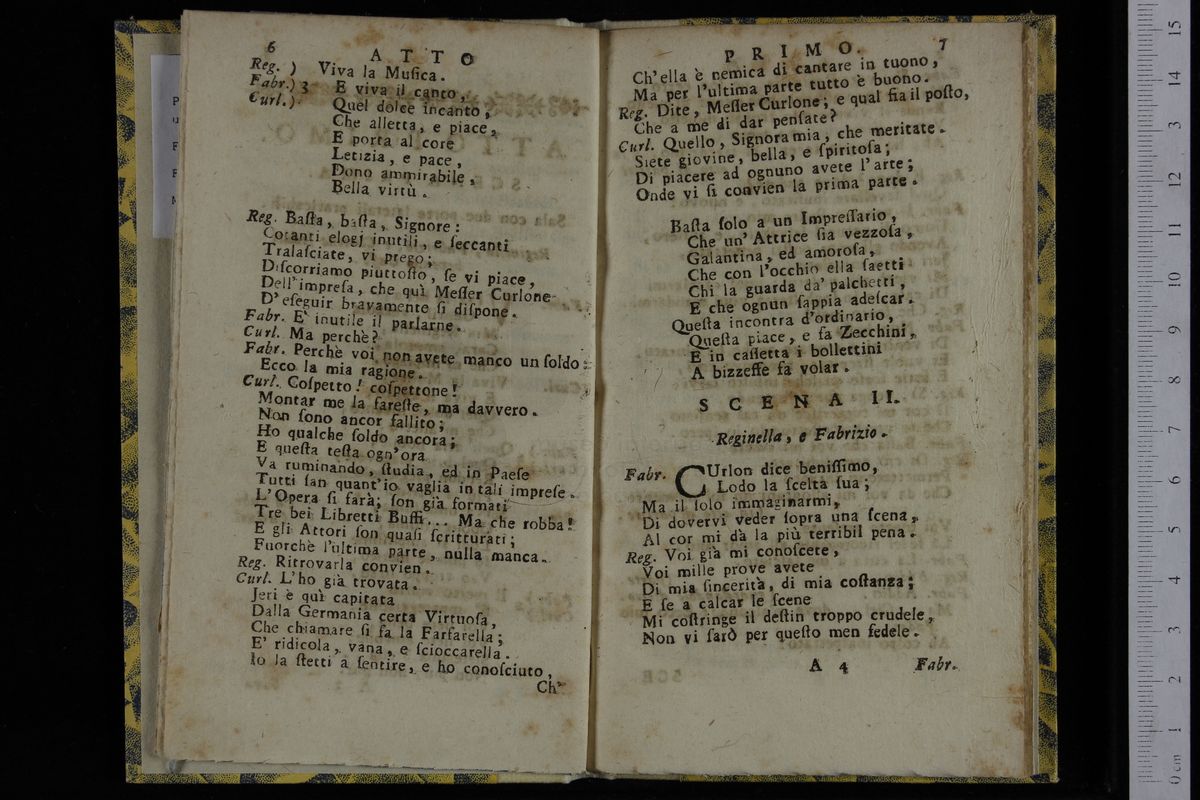 6
ATTO
Reg. ) Viva la Muſica.
Fabr.) 3 E viva il canto,
Curl.) Quel dolce incanto,
Che alletta, e piace,
E porta al core
Letizia, e pace,
Dono ammirabile,
Bella virtù.
Reg. Baſta, baſta, Signore:
Cotanti elogj inutili, e ſeccanti
Tralaſciate, vi prego;
Diſcorriamo piuttoſto, ſe vi piace,
Dell'impreſa, che quì Meſſer Curlone
D'eſeguir bravamente ſi diſpone.
Fabr. E' inutile il parlarne.
Curl. Ma perchè?
Fabr. Perchè voi non avete manco un ſoldo:
Ecco la mia ragione.
Curl. Coſpetto! coſpettone!
Montar me la fareſte, ma davvero.
Non ſono ancor fallito;
Ho qualche ſoldo ancora;
E queſta teſta ogn'ora
Va ruminando, ſtudia, ed in Paeſe
Tutti ſan quant'io vaglia in tali impreſe.
L'Opera ſi farà; ſon già formati
Tre bei Libretti Buffi... Ma che robba!
E gli Attori ſon quaſi ſcritturati;
Fuorchè l'ultima parte, nulla manca.
Reg. Ritrovarla convien.
Curl. L'ho già trovata.
Jeri è quì capitata
Dalla Germania certa Virtuoſa,
Che chiamare ſi fa la Farfarella;
E' ridicola, vana, e ſcioccarella.
Io la ſtetti a ſentire, e ho conoſciuto,
Ch'
PRIMO.
7
Ch'ella è nemica di cantare in tuono,
Ma per l'ultima parte tutto è buono.
Reg. Dite, Meſſer Curlone; e qual ſia il poſto,
Che a me di dar penſate?
Curl. Quello, Signora mia, che meritate.
Siete giovine, bella, e ſpiritoſa;
Di piacere ad ognuno avete l'arte;
Onde vi ſi convien la prima parte.
Baſta ſolo a un Impreſſario,
Che un' Attrice ſia vezzoſa,
Galantina, ed amoroſa,
Che con l'occhio ella ſaetti
Chi la guarda da' palchetti,
E che ognun ſappia adeſcar.
Queſta incontra d'ordinario,
Queſta piace, e fa Zecchini,
E in caſſetta i bollettini
A bizzeffe fa volar.
SCENA II.
Reginella, e Fabrizio.
Fabr. CUrlon dice beniſſimo,
Lodo la ſcelta ſua;
Ma il ſolo immaginarmi,
Di dovervi veder ſopra una ſcena,
Al cor mi dà la più terribil pena.
Reg. Voi già mi conoſcete,
Voi mille prove avete
Di mia ſincerità, di mia coſtanza;
E ſe a calcar le ſcene
Mi coſtringe il deſtin troppo crudele,
Non vi ſarò per queſto men fedele.
A 4
Fabr.